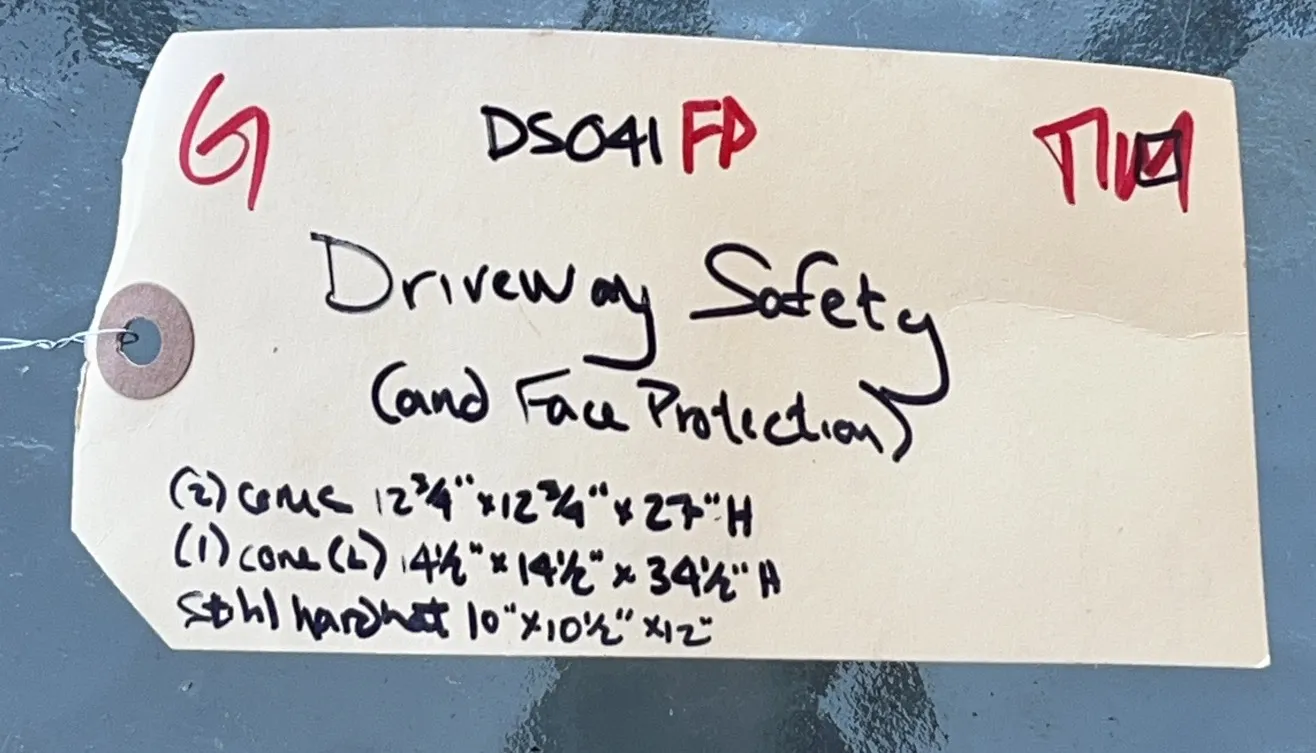 G DS041 FP
Driveway Safety
(and Face Protection)
(2) cone 12 3/4" x 12 3/4" x 27" H
(1) cone (L) 14 1/2" x 14 1/2" x 34 1/2" H
Stihl hardhat 10" x 10 1/2" x 12"